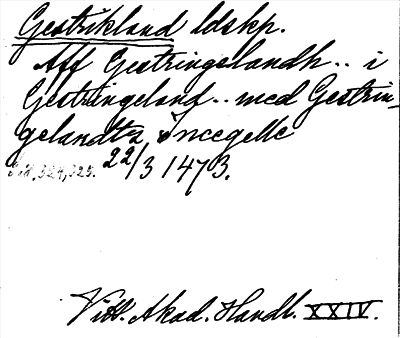 Gestrikland ldskp.
Aff Gestringelandh.. i
Gestringeland.. med Gestrin-
gelandtz Incegelle
s. 324, 325. 22/3 1473.
Vitt. Akad. Handl. XXIV.